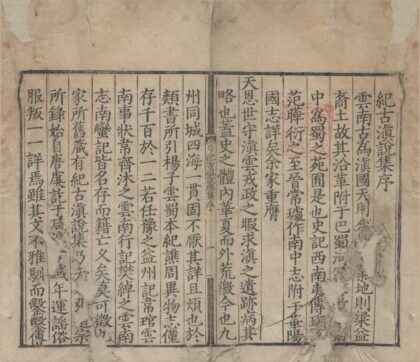 紀古滇說集序
雲南古為滇國天則地則梁益
裔土故其沿革附于巴蜀
中為蜀之苑囿是也史記西南夷傳
范曄衍之至晉常璩作南中志附于華陽
國志詳矣余家重膺
天恩世守滇雲戎政之暇求滇之遺跡病其
略也蓋史之體內華夏而外荒徼今也九
州同城四海一貫固不厭其詳且煩也於
類書所引楊子雲蜀本紀譙周異物志僅
存千百於一二若任豫之益州記常琯雲
南事狀嘗齊沐之雲南行記樊綽之雲南
志南蠻記皆名存而籍亡久矣莫可徵
家所舊藏有紀古滇說集乃
所錄始自唐虞訖于年運謠俗
服叛一一詳焉雖其文不雅馴而鑿鑿傳